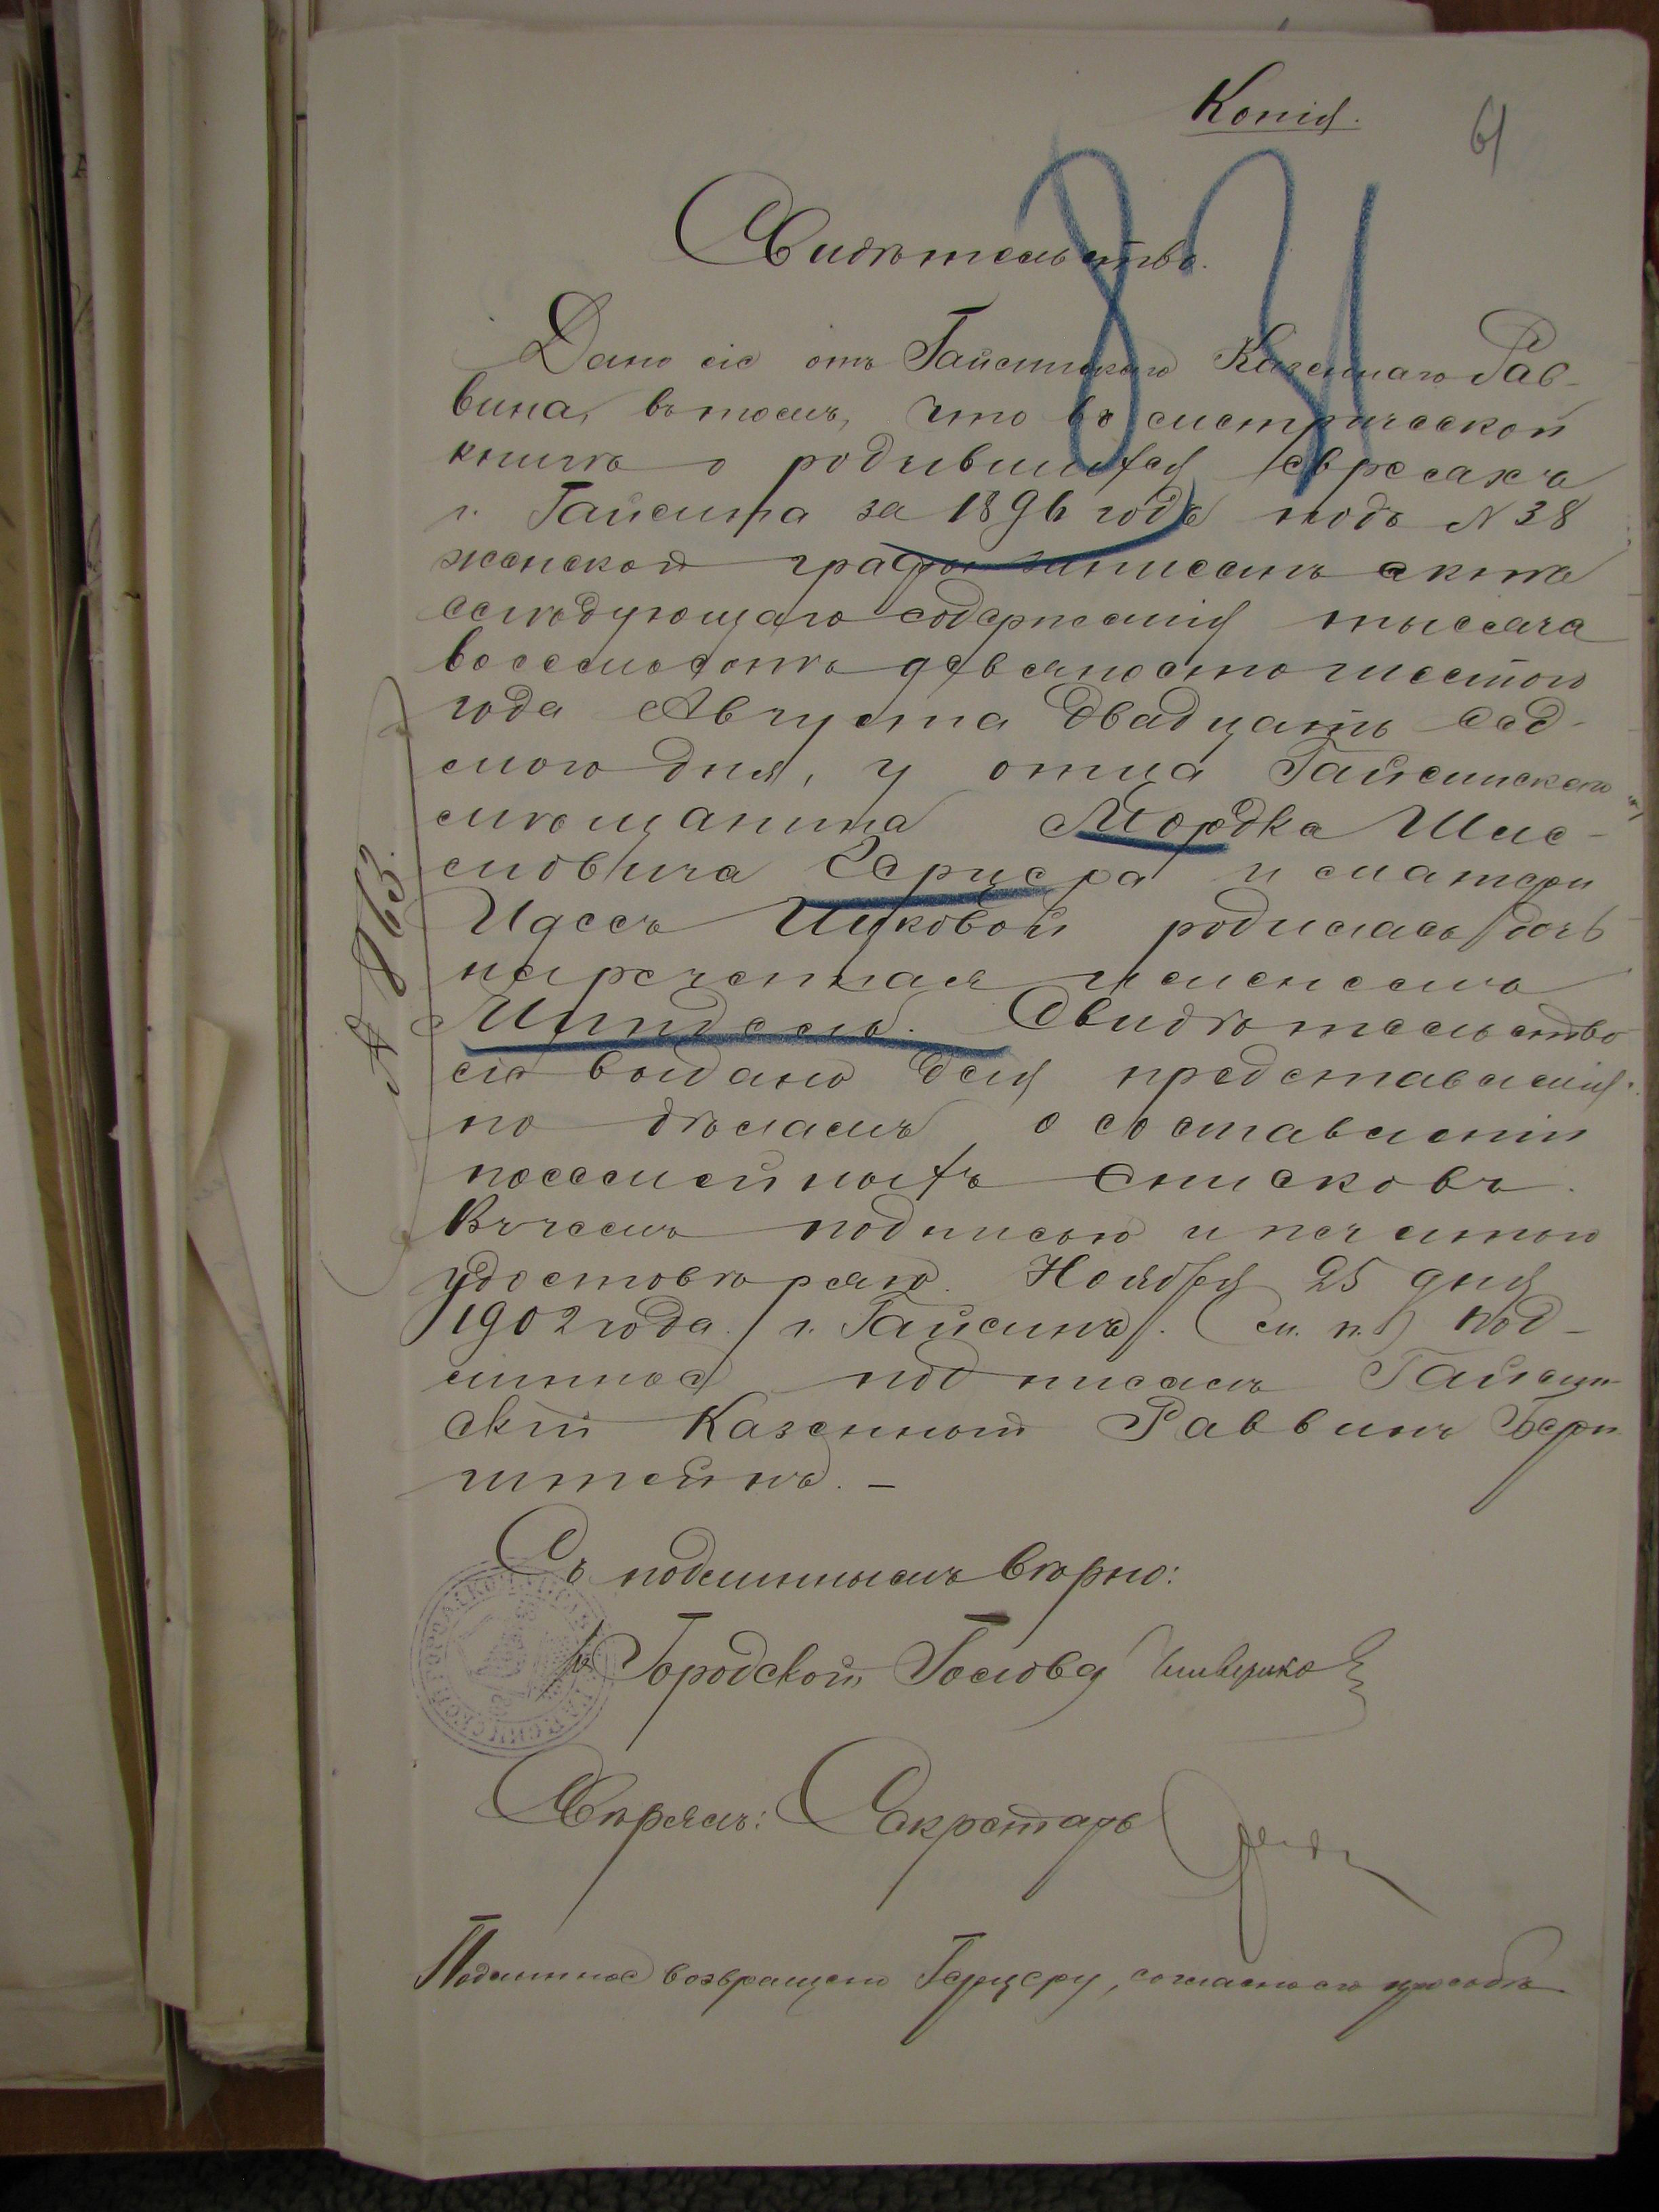 Копія.
61
Свидѣтельство.
Дано сіе отъ Гайсинскаго Казеннаго Рав-
вина, въ томъ, что въ метрической
книгѣ о родившихся евреяхъ
г. Гайсина за 1896 годъ подъ № 38
женской графы записанъ актъ
слѣдующаго содержанія тысяча
восемьсотъ девяносто шестого
года Августа двадцать сед-
мого дня, у отца Гайсинскаго
мѣщанина Мордка Шле-
мовича Герцера и матери
Идесъ Ицковой родилась дочь
нареченная именемъ
Миндель. Свидѣтельство
сіе выдано для представленія
по дѣламъ о составленіи
посемейныхъ списковъ.
Въ чемъ подписью и печатью
удостовѣряю. Ноября 25 дня
1902 года. г. Гайсинъ. (м. п.) Под-
линное подписалъ Гайсин-
скій Казенный Раввинъ Берн-
штейнъ. —
№ 863.
Съ подлиннымъ вѣрно:
Городской Голова
Свѣрялъ: Секретарь
Подлинное возвращено Герцеру, согласно его просьбѣ